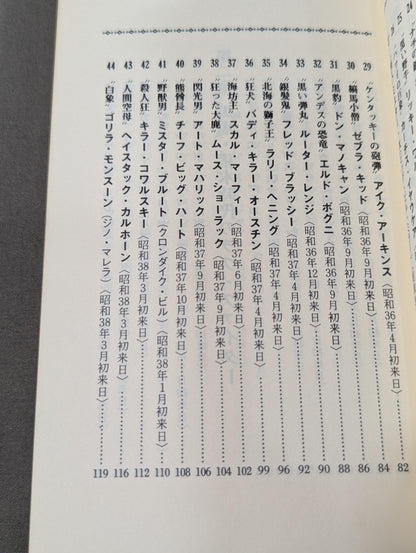 29 “ケンタッキーの砲弾”アイク・アーキンス〈昭和36年4月初来日〉……82
30 “縞馬小僧”ゼブラ・キッド〈昭和36年9月初来日〉……84
31 “黒豹”ドン・マノキャン〈昭和36年9月初来日〉……86
32 “アンデスの恐竜”エルド・ボグニ〈昭和36年9月初来日〉……88
33 “黒い弾丸”ルーター・レンジ〈昭和36年12月初来日〉……90
34 “銀髪鬼”フレッド・ブラッシー〈昭和37年4月初来日〉……93
35 “北海の獅子王”ラリー・ヘニング〈昭和37年4月初来日〉……96
36 “狂犬”バディ・キラー・オースチン〈昭和37年4月初来日〉……99
37 “海坊主”スカル・マーフィー〈昭和37年6月初来日〉……102
38 “狂った大鹿”ムース・ショーラック〈昭和37年9月初来日〉……104
39 “閃光男”アート・マハリック〈昭和37年9月初来日〉……106
40 “熊酋長”チーフ・ビッグ・ハート〈昭和37年10月初来日〉……108
41 “野獣男”ミスター・ブルート（クロンダイク・ビル）〈昭和38年1月初来日〉……110
42 “殺人狂”キラー・コワルスキー〈昭和38年3月初来日〉……112
43 “人間空母”ヘイスタック・カルホーン〈昭和38年3月初来日〉……116
44 “白象”ゴリラ・モンスーン（ジノ・マレラ）〈昭和38年3月初来日〉……119